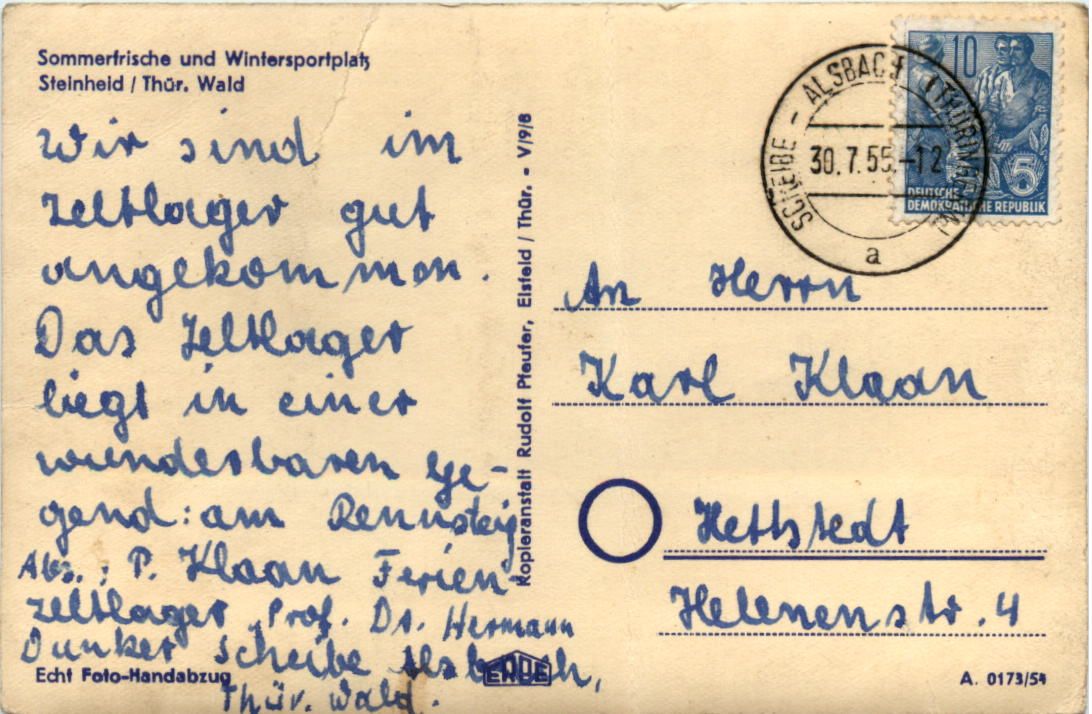 Sommerfrische und Wintersportplatz
Steinheid / Thür. Wald
Wir sind im
Zeltlager gut
angekommen.
Das Zeltlager
liegt in einer
wunderbaren Ge-
gend: am Rennsteig
Abs.: P. Klaan Ferien-
zeltlager "Prof. Dr. Hermann
Dunker Scheibe Alsbach,
Thür. Wald.
Echt Foto-Handabzug
Kopieranstalt Rudolf Pfeufer, Eisfeld / Thür. - V/9/8
SCHEIBE - ALSBACH (THÜRINGEN)
30.7.55.-12
a
10
5
DEUTSCHE
DEMOKRATISCHE REPUBLIK
An Herrn
Karl Klaan
Hettstedt
Helenenstr. 4
ERDE
A. 0173/54